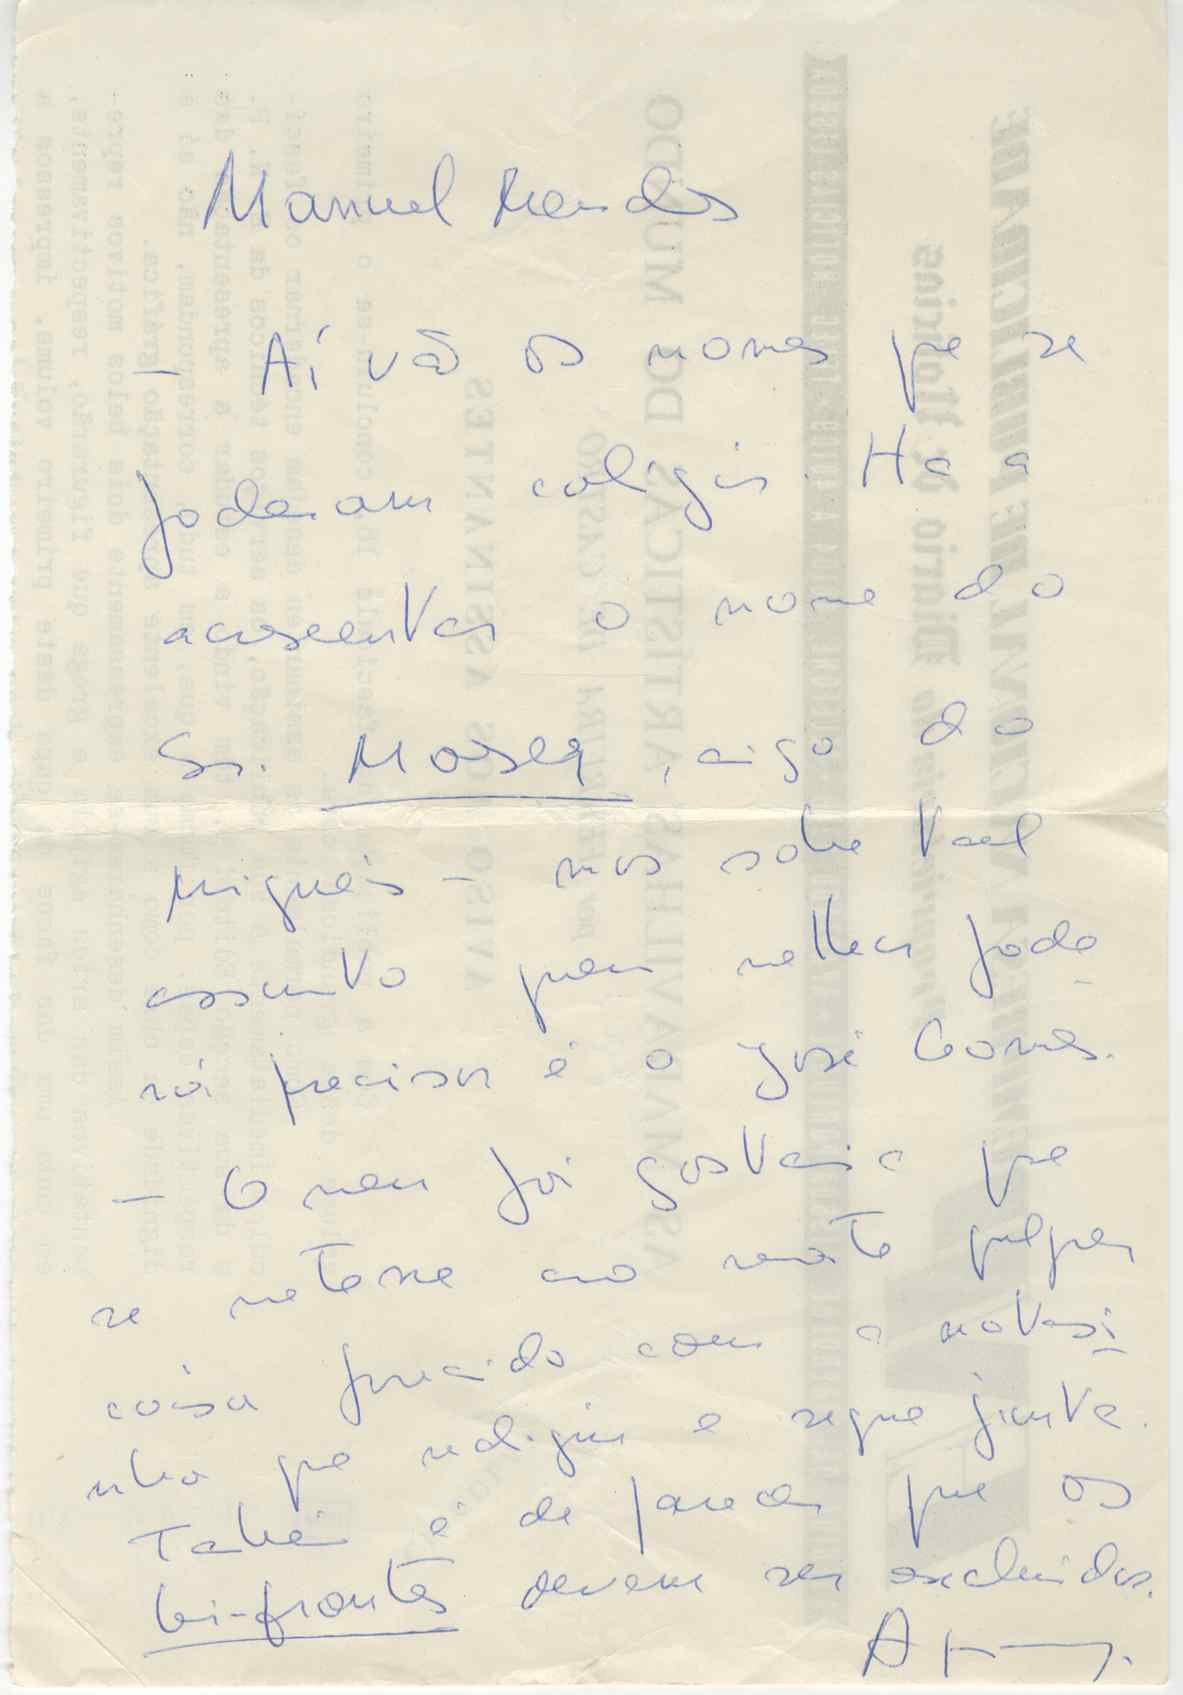 Manuel Mendes
— Aí vão os nomes que se
poderam coligir. Ha a
acrescentar o nome do
Sr. Moser, amigo do
Miguéis — mas sobre tal
assunto quem melhor pode-
rá precisar é o José Gomes.
— O meu foi gostaria que
se metesse no remate qualquer
coisa parecido com a notasi-
nha que redigiu e segue junta.
Tambem é de parecer que os
bi-frontes devem ser excluidos.